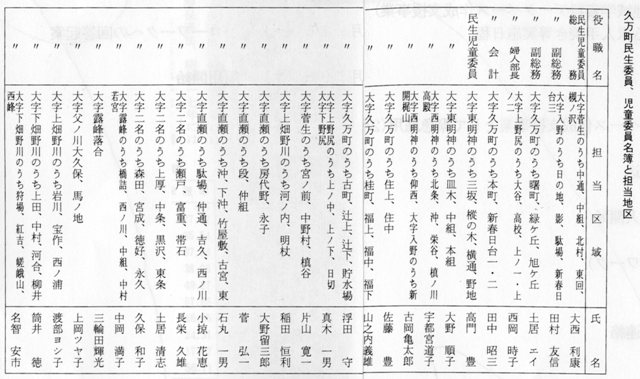 久万町民生委員、児童委員名簿と担当地区
役職名 担当区域 氏名
民生児童委員 総務 大字菅生のうち中通、中組、北村、東回、槻ノ沢 大西利康
〃 副総務 大字入野のうち日の地、影、駄場、新春日台三 田村友信
〃 副総務 大字久万町のうち曙町、緑ヶ丘、旭ヶ丘 土居エイ
〃 婦人部長 大字上野尻のうち大谷、高校、上ノ一・上ノ二 西岡時子
〃 会計 大字久万町のうち本町、新春日台一・二 田中昭三
民生児童委員 大字東明神のうち三坂、樅の木、横通、野地 高門豊
〃 大字東明神のうち皿木、中組、本組 大野順子
〃 大字西明神のうち北条、沖、栄谷、槙ノ川、高殿 宇都宮道子
〃 大字西明神のうち仰西、大字入野のうち新開 古岡亀太郎
〃 大字久万町のうち住上、住中 佐藤豊
〃 大字久万町のうち桂町、福上、福中、福下 山之内義雄
〃 大字久万町のうち古町、辻上、辻下、貯水場 浮田守
〃 大字上野尻のうち上ノ中、上ノ下、日切 大字下野尻 真木一男
〃 大字菅生のうち宮ノ前、中野村、槙谷 片山寛一
〃 大字上畑野川のうち河ノ内、明杖 稲田恒利
〃 大字直瀬のうち房代野、永子 大野留三郎
〃 大字直瀬のうち段、仲組 菅弘一
〃 大字直瀬のうち沖、下沖、竹屋敷、古宮、東 石丸一男
〃 大字直瀬のうち駄場、仲通、吉久、西ノ川 小掠花恵
〃 大字二名のうち瀬戸、富重、帯石 長栄久雄
〃 大字二名のうち上厚、中条、黒沢、東条 土居清志
〃 大字二名のうち森田、宮成、徳好、永久 久保和子
〃 大字露峰のうち橋詰、西ノ川、中組、中村、若宮 中岡満子
〃 大字露峰落合 三輪田輝光
〃 大字父ノ川大久保、馬ノ地 上岡ツヤ子
〃 大字上畑野川のうち岩川、宝作、西ノ浦 渡部ヨシ子
〃 大字下畑野川のうち上田、中村、河合、柳井 筒井徳
〃 大字下畑野川のうち狩場、紅吉、嵯峨山、西峰 名智安市